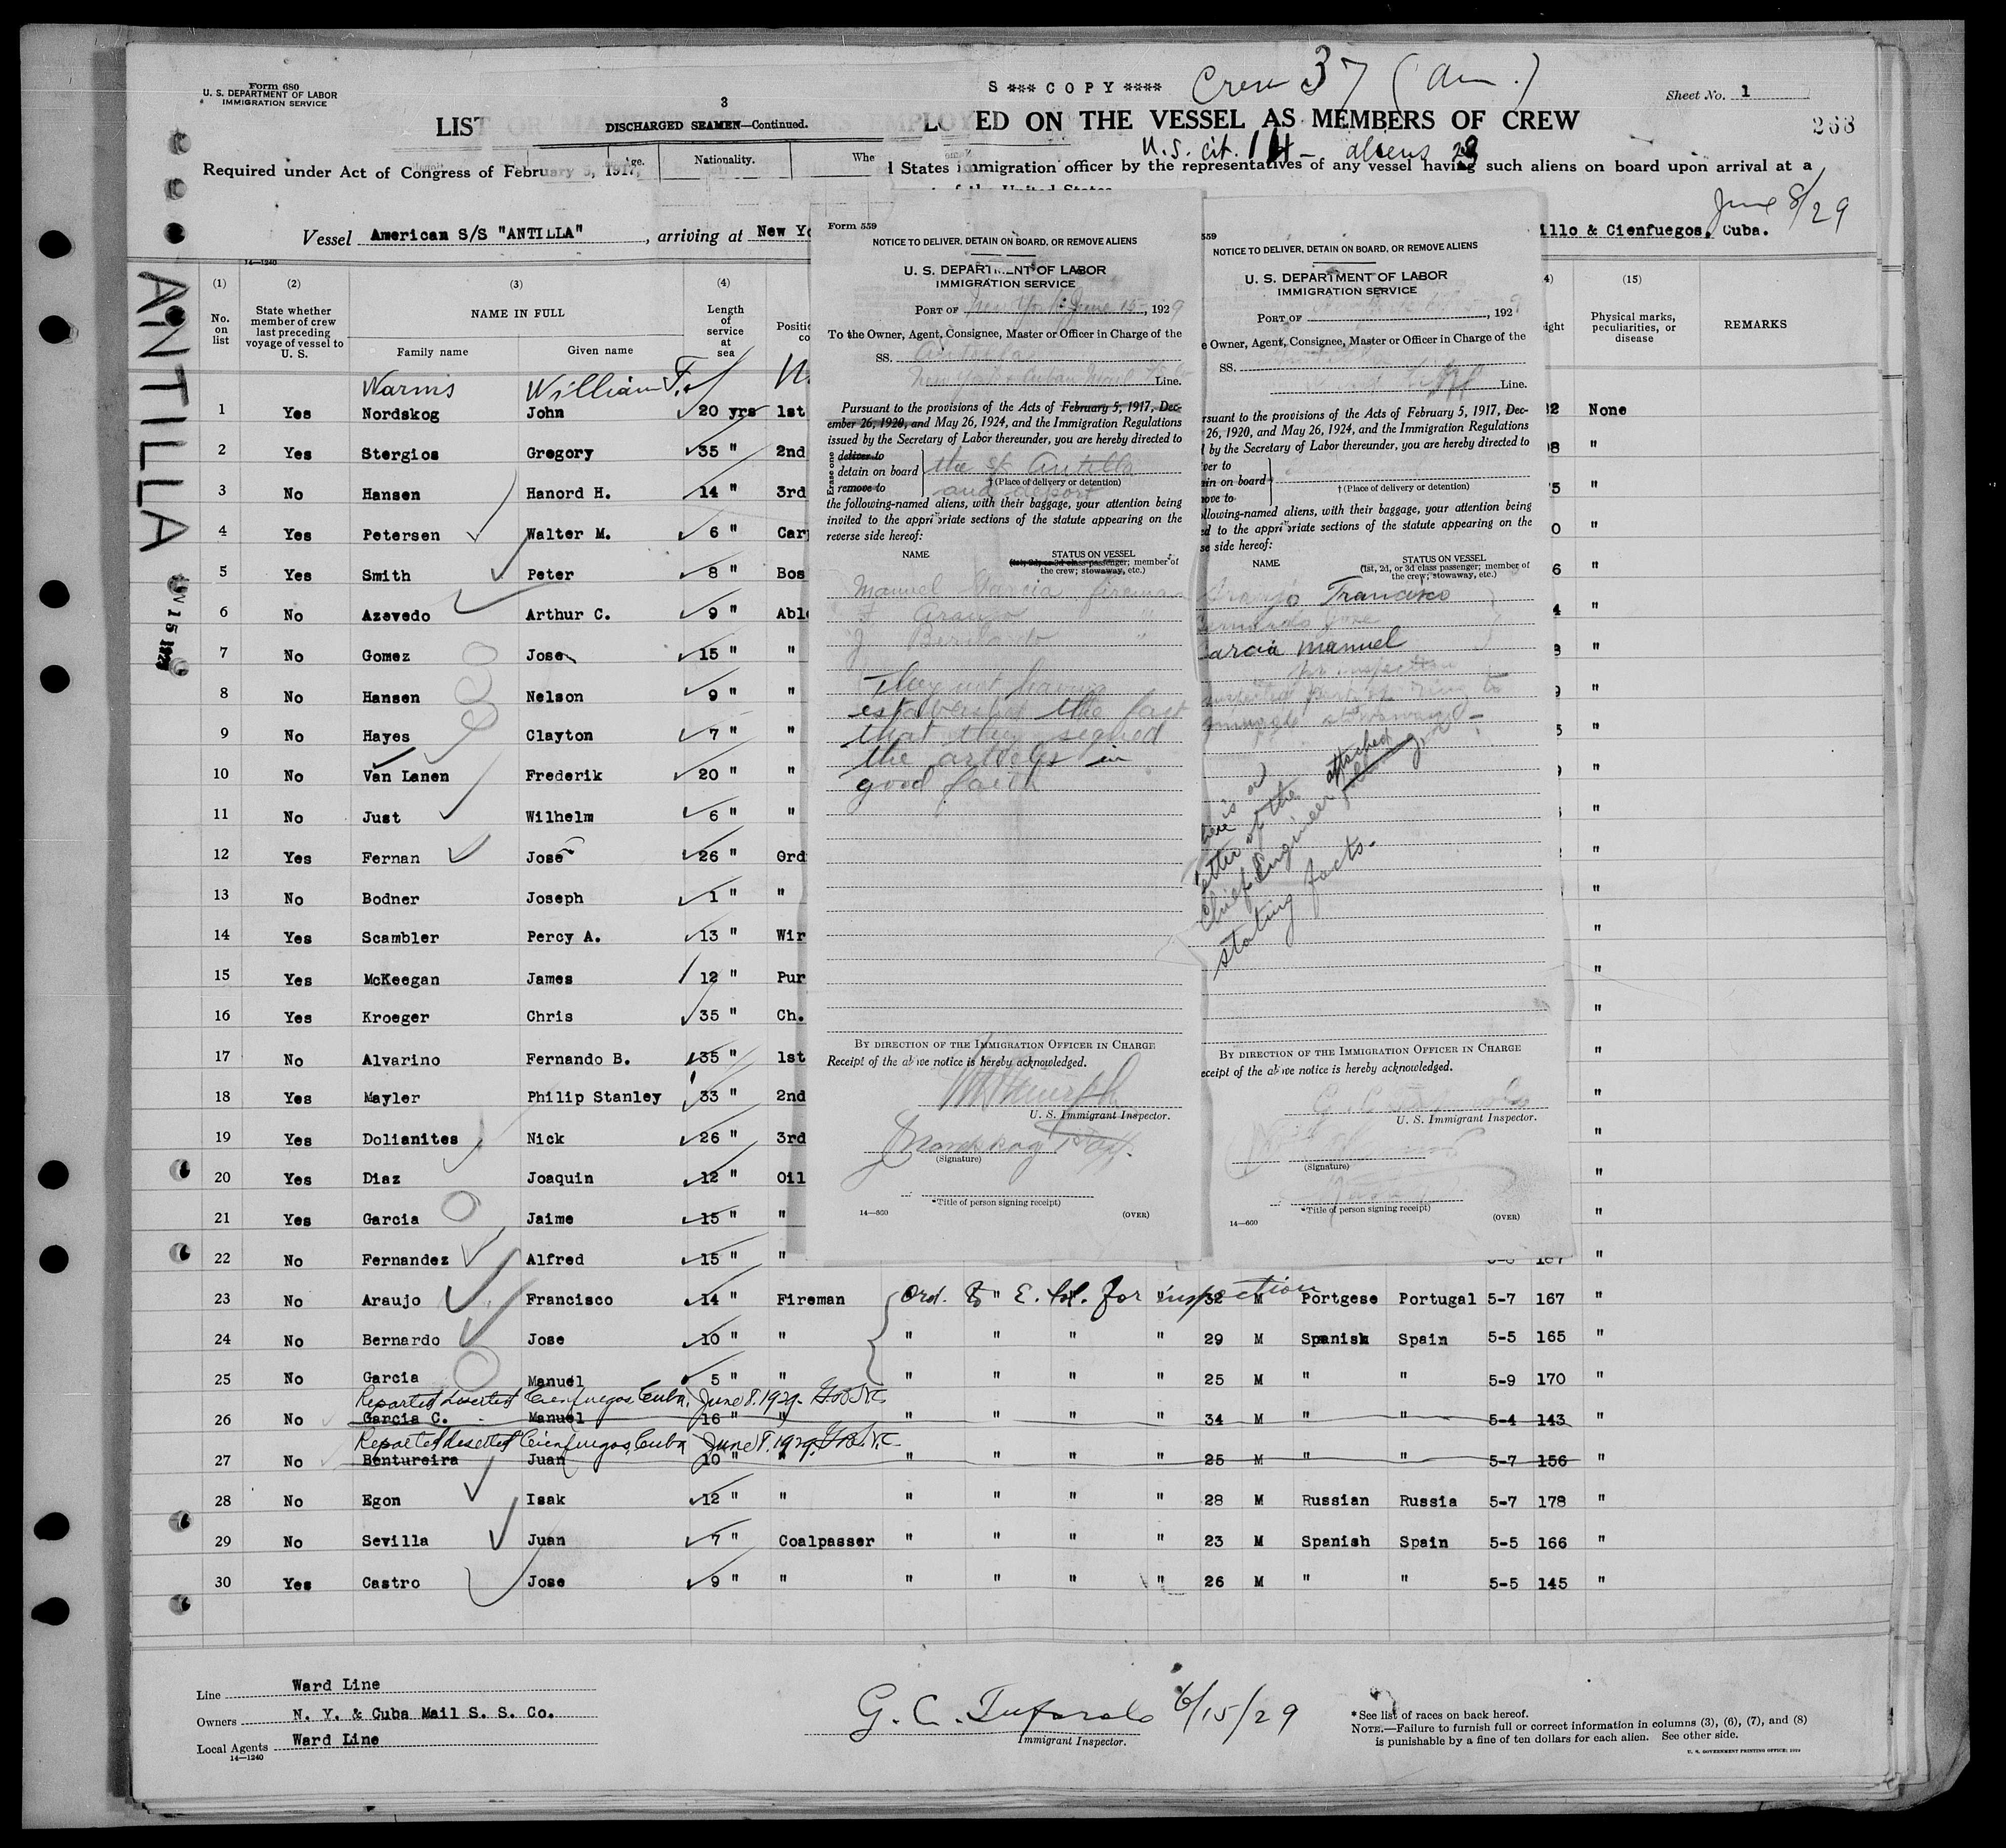 Form 680
U. S. DEPARTMENT OF LABOR
IMMIGRATION SERVICE
S *** C O P Y ****
Crew 37 (Am.)
Sheet No. 1
3
DISCHARGED SEAMEN—Continued.
LIST
ED ON THE VESSEL AS MEMBERS OF CREW
268
U.S. cit. 14 - aliens 23
Age. Nationality. Whe
Required under Act of Congress of February 5, 1917,
d States immigration officer by the representatives of any vessel having such aliens on board upon arrival at a
of the United States
June 8/29
Vessel American S/S "ANTILLA", arriving at New Yo
illo & Cienfuegos, Cuba.
ANTILLA
14—1240
(1) (2) (3) (4)
No. on list
State whether member of crew last preceding voyage of vessel to U. S.
NAME IN FULL
Family name Given name
Length of service at sea
Positio
co
4)
ight
(15)
Physical marks, peculiarities, or disease
REMARKS
Warms William F.
1 Yes Nordskog John 20 yrs 1st 32 None
2 Yes Stergios Gregory 35 " 2nd 08 "
3 No Hansen Hanord H. 14 " 3rd 5 "
4 Yes Petersen Walter M. 6 " Car 0 "
5 Yes Smith Peter 8 " Bos 6 "
6 No Azevedo Arthur C. 9 " Able 4 "
7 No Gomez Jose 15 " " 3 "
8 No Hansen Nelson 9 " " 9 "
9 No Hayes Clayton 7 " " 5 "
10 No Van Lanen Frederik 20 " " "
11 No Just Wilhelm 6 " " "
12 Yes Fernan Jose 26 " Ord "
13 No Bodner Joseph 1 " " "
14 Yes Scambler Percy A. 13 " Wir "
15 Yes McKeegan James 12 " Pur "
16 Yes Kroeger Chris 35 " Ch. "
17 No Alvarino Fernando B. 35 " 1st "
18 Yes Mayler Philip Stanley 33 " 2nd "
19 Yes Dolianites Nick 26 " 3rd "
20 Yes Diaz Joaquin 12 " Oil "
21 Yes Garcia Jaime 15 " " "
22 No Fernandez Alfred 15 " " "
23 No Araujo Francisco 14 " Fireman Ord. to E. Isl. for inspection 32 M Portgese Portugal 5-7 167 "
24 No Bernardo Jose 10 " " " " " " 29 M Spanish Spain 5-5 165 "
25 No Garcia Manuel 5 " " " " " " 25 M " " 5-9 170 "
Reported deserted Cienfuegos, Cuba, June 8. 1929.
26 No Garcia C. Manuel 16 " " " " " " 34 M " " 5-4 143 "
Reported deserted Cienfuegos, Cuba June 8. 1929
27 No Bentureira Juan 10 " " " " " " 25 M " " 5-7 156 "
28 No Egon Isak 12 " " " " " " 28 M Russian Russia 5-7 178 "
29 No Sevilla Juan 7 " Coalpasser " " " " 23 M Spanish Spain 5-5 166 "
30 Yes Castro Jose 9 " " " " " " 26 M " " 5-5 145 "
Form 559
NOTICE TO DELIVER, DETAIN ON BOARD, OR REMOVE ALIENS
U. S. DEPARTMENT OF LABOR
IMMIGRATION SERVICE
PORT OF New York June 15, 1929
To the Owner, Agent, Consignee, Master or Officer in Charge of the
SS. Antilla
New York & Cuban Mail Line.
Pursuant to the provisions of the Acts of February 5, 1917, Dec-
ember 26, 1920, and May 26, 1924, and the Immigration Regulations
issued by the Secretary of Labor thereunder, you are hereby directed to
Erase one
deliver to
detain on board
remove to
the SS Antilla
†(Place of delivery or detention)
and deport
the following-named aliens, with their baggage, your attention being
invited to the appropriate sections of the statute appearing on the
reverse side hereof:
NAME STATUS ON VESSEL
(1st, 2d, or 3d class passenger; member of
the crew; stowaway, etc.)
Manuel Garcia fireman
F Araujo "
J Bernardo "
They not having
established the fact
that they signed
the articles in
good faith
BY DIRECTION OF THE IMMIGRATION OFFICER IN CHARGE
Receipt of the above notice is hereby acknowledged.
U. S. Immigrant Inspector.
(Signature)
*Title of person signing receipt)
14—600
(OVER)
559
NOTICE TO DELIVER, DETAIN ON BOARD, OR REMOVE ALIENS
U. S. DEPARTMENT OF LABOR
IMMIGRATION SERVICE
PORT OF , 192
e Owner, Agent, Consignee, Master or Officer in Charge of the
SS.
Line.
rsuant to the provisions of the Acts of February 5, 1917, Dec-
26, 1920, and May 26, 1924, and the Immigration Regulations
d by the Secretary of Labor thereunder, you are hereby directed to
ver to
ain on board
move to
†(Place of delivery or detention)
ollowing-named aliens, with their baggage, your attention being
ed to the appropriate sections of the statute appearing on the
se side hereof:
NAME STATUS ON VESSEL
(1st, 2d, or 3d class passenger; member of
the crew; stowaway, etc.)
Araujo Francisco
Bernardo Jose
Garcia Manuel
for inspection
smuggle stowaways -
here is a
letter of the attached
Chief Engineer
stating facts.
BY DIRECTION OF THE IMMIGRATION OFFICER IN CHARGE
eceipt of the above notice is hereby acknowledged.
U. S. Immigrant Inspector.
(Signature)
*Title of person signing receipt)
14—600
(OVER)
Line Ward Line
Owners N. Y. & Cuba Mail S. S. Co.
Local Agents Ward Line
14—1240
6/15/29
Immigrant Inspector.
*See list of races on back hereof.
NOTE.—Failure to furnish full or correct information in columns (3), (6), (7), and (8)
is punishable by a fine of ten dollars for each alien. See other side.
U. S. GOVERNMENT PRINTING OFFICE: 1929